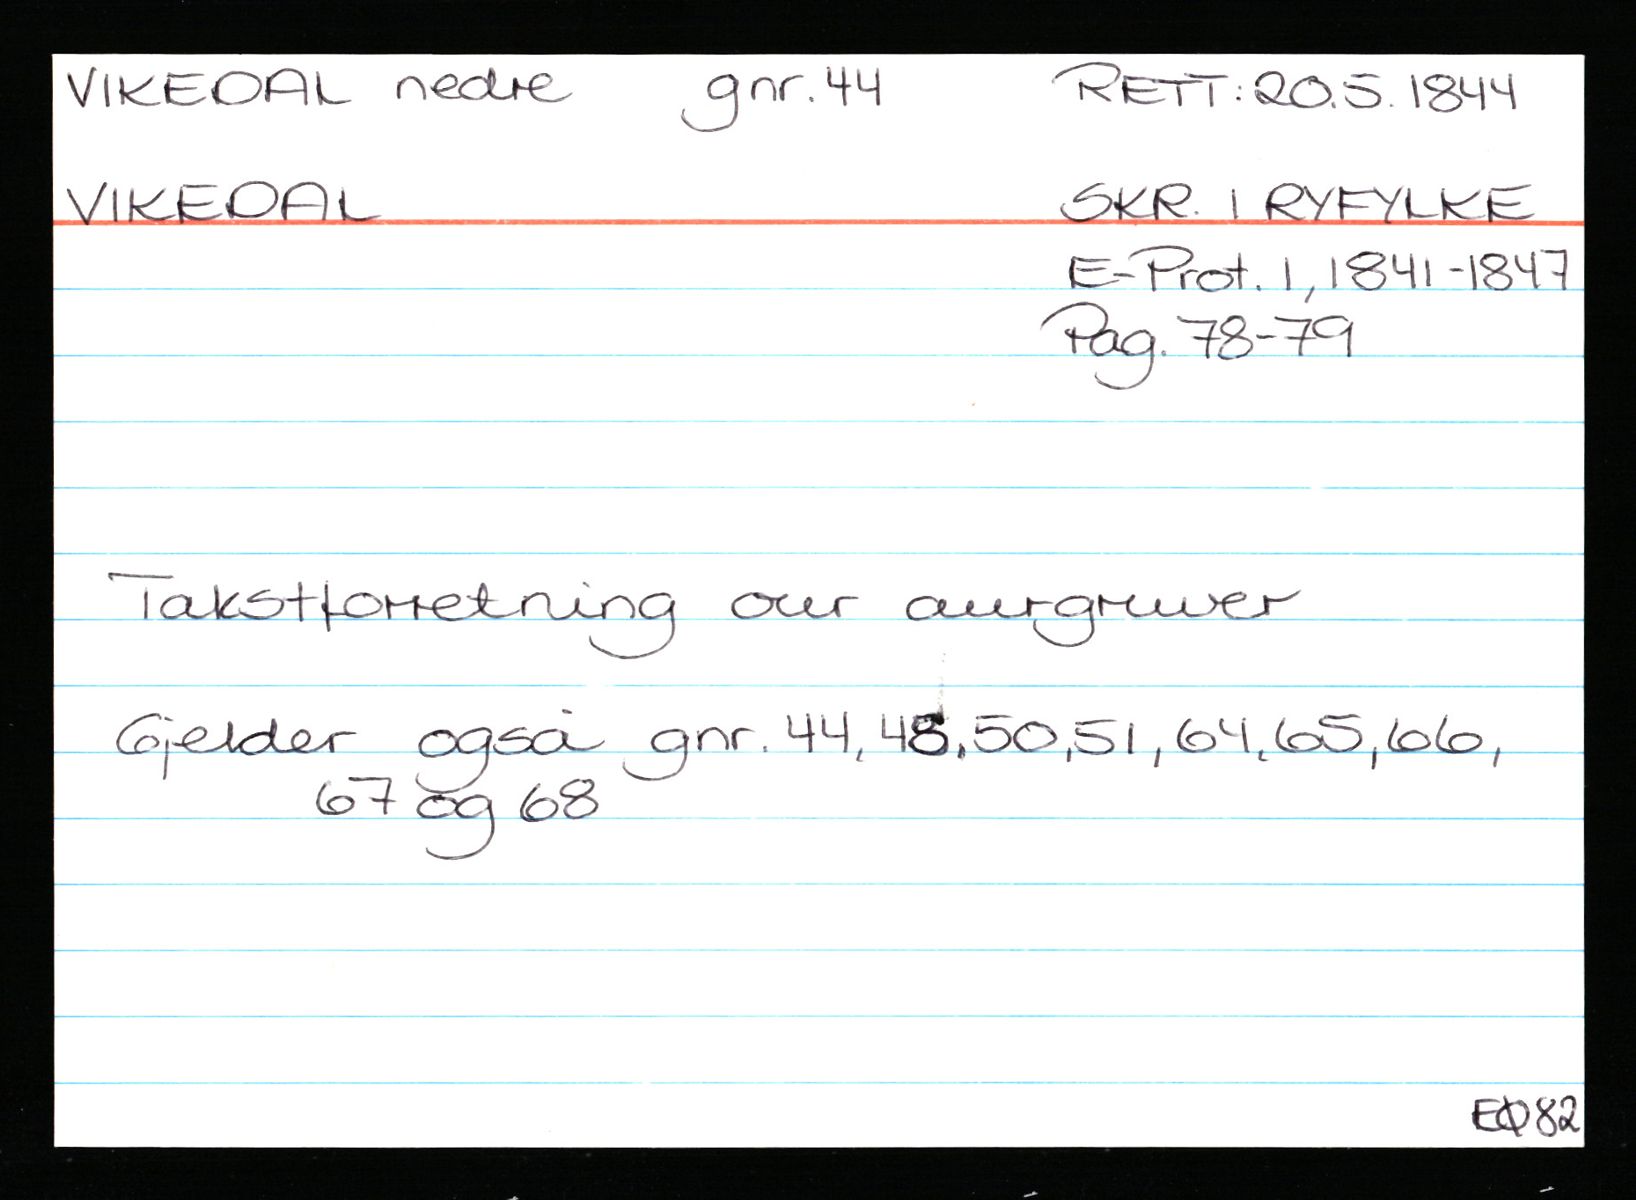 VIKEDAL nedre gnr. 44 RETT: 20.5.1844
VIKEDAL SKR. I RYFYLKE
E-Prot. 1, 1841-1847
Pag. 78-79
Takstforretning over aurgruver
Gjelder også gnr. 44, 48, 50, 51, 64, 65, 66,
67 og 68
EØ82